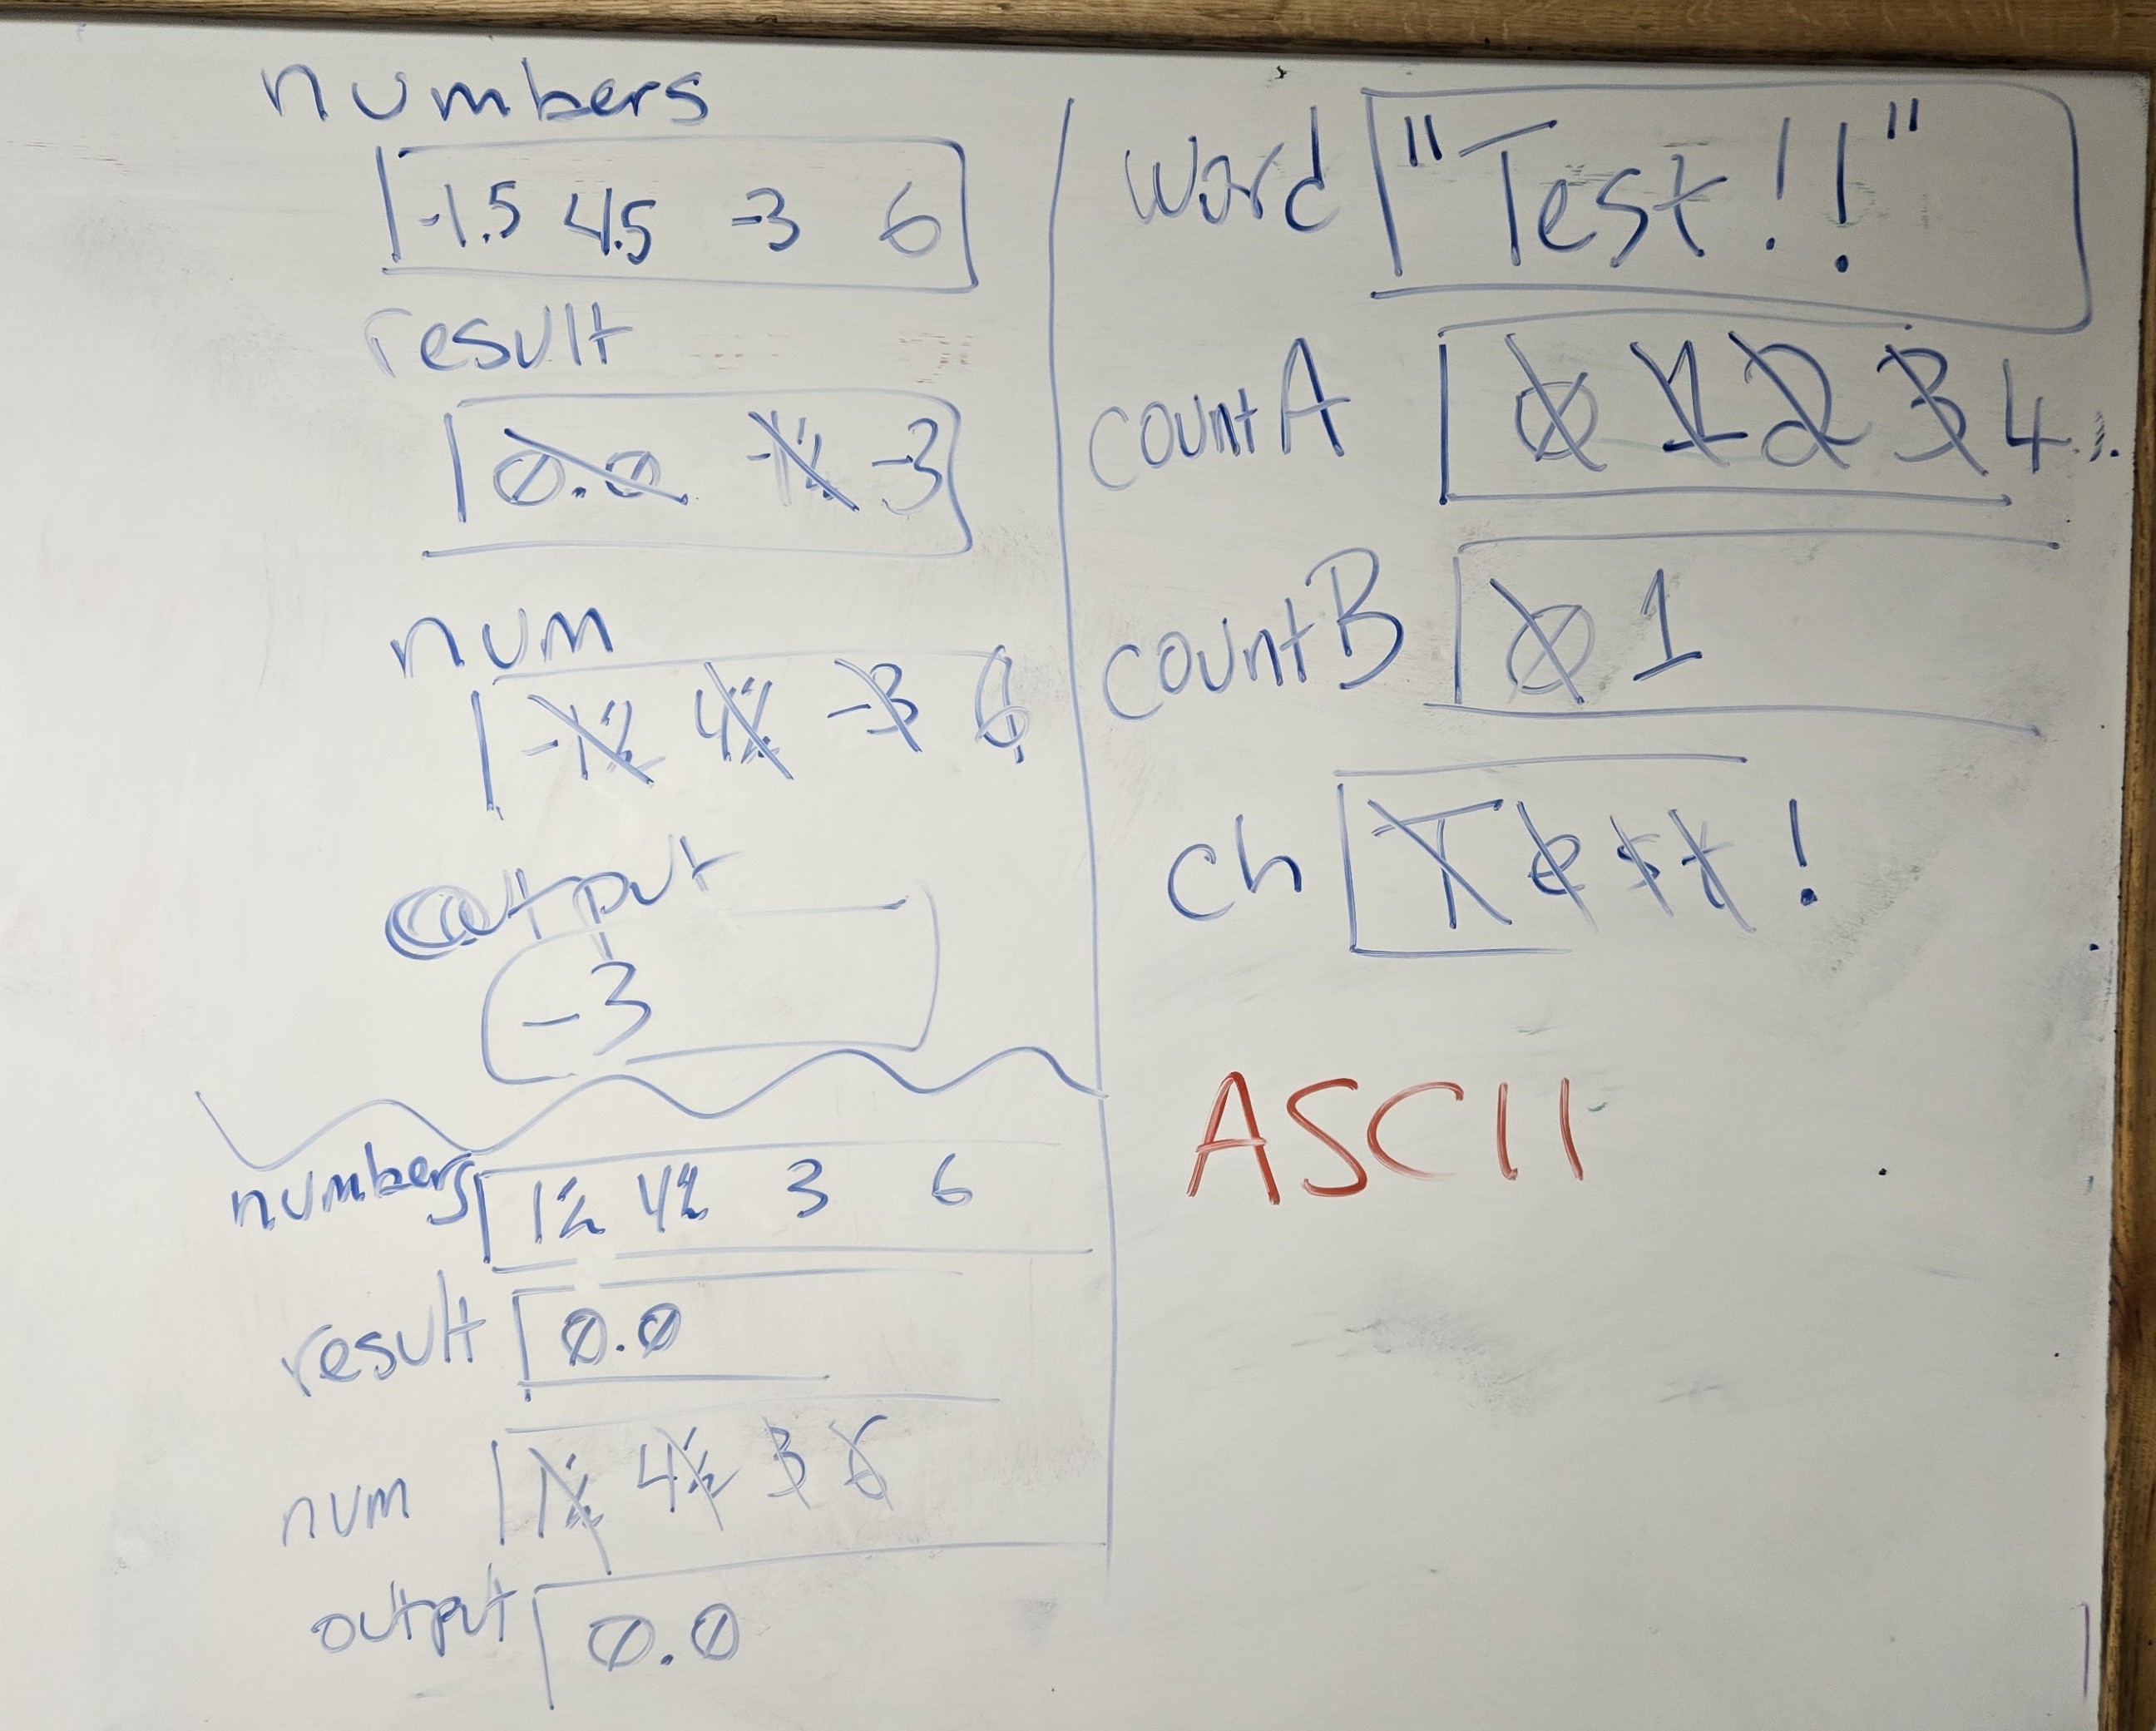 numbers
-1.5 4.5 -3 6
result
0.0 -1½ -3
num
-1½ 4½ -3 6
output
-3
numbers 1½ 4½ 3 6
result 0.0
num 1½ 4½ 3 6
output 0.0
word "Test!!"
countA 0 1 2 3 4
countB 0 1
ch T e s t !
ASCII